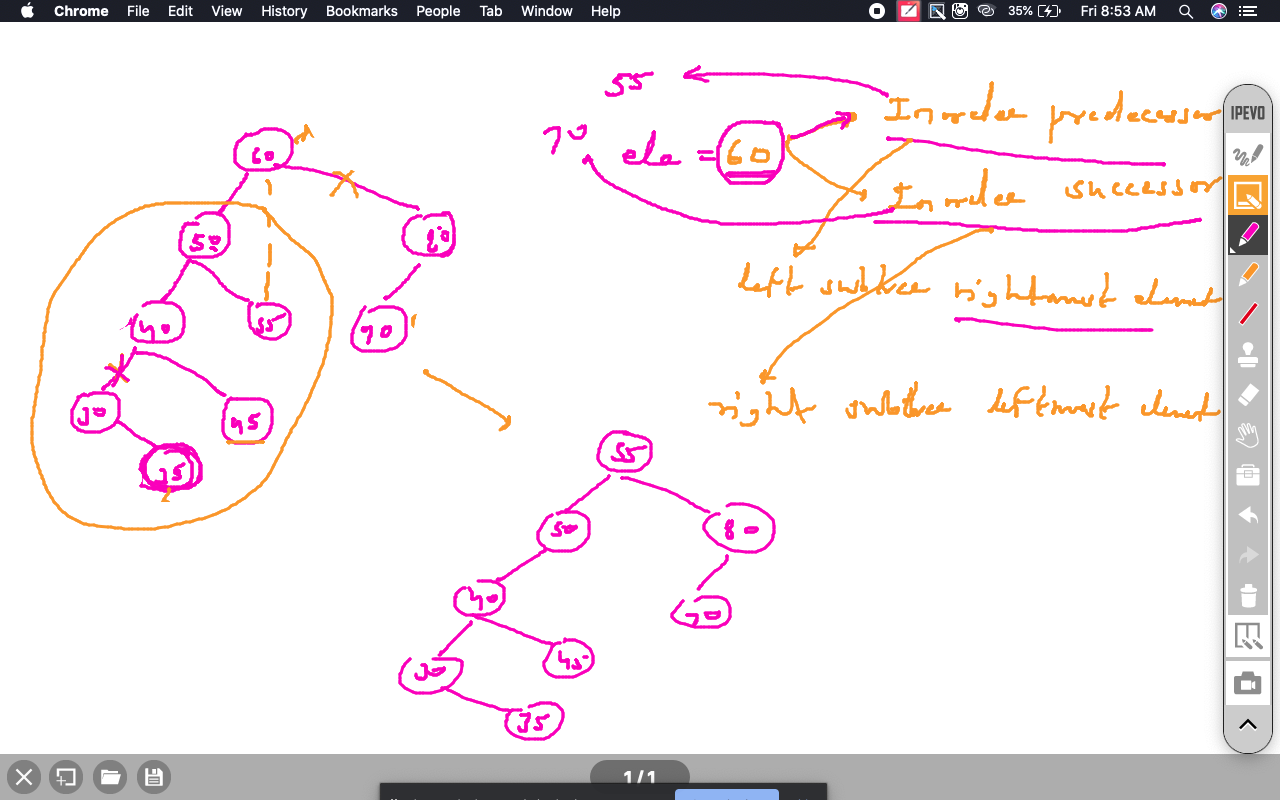 Chrome File Edit View History Bookmarks People Tab Window Help 35% Fri 8:53 AM
IPEVO
55
Inorder predecessor
70 ele = 60
Inorder successor
left subtree rightmost element
right subtree leftmost element
60
50 80
40 55 70
30 45
35
55
50 80
40 70
30 45
35
1/1